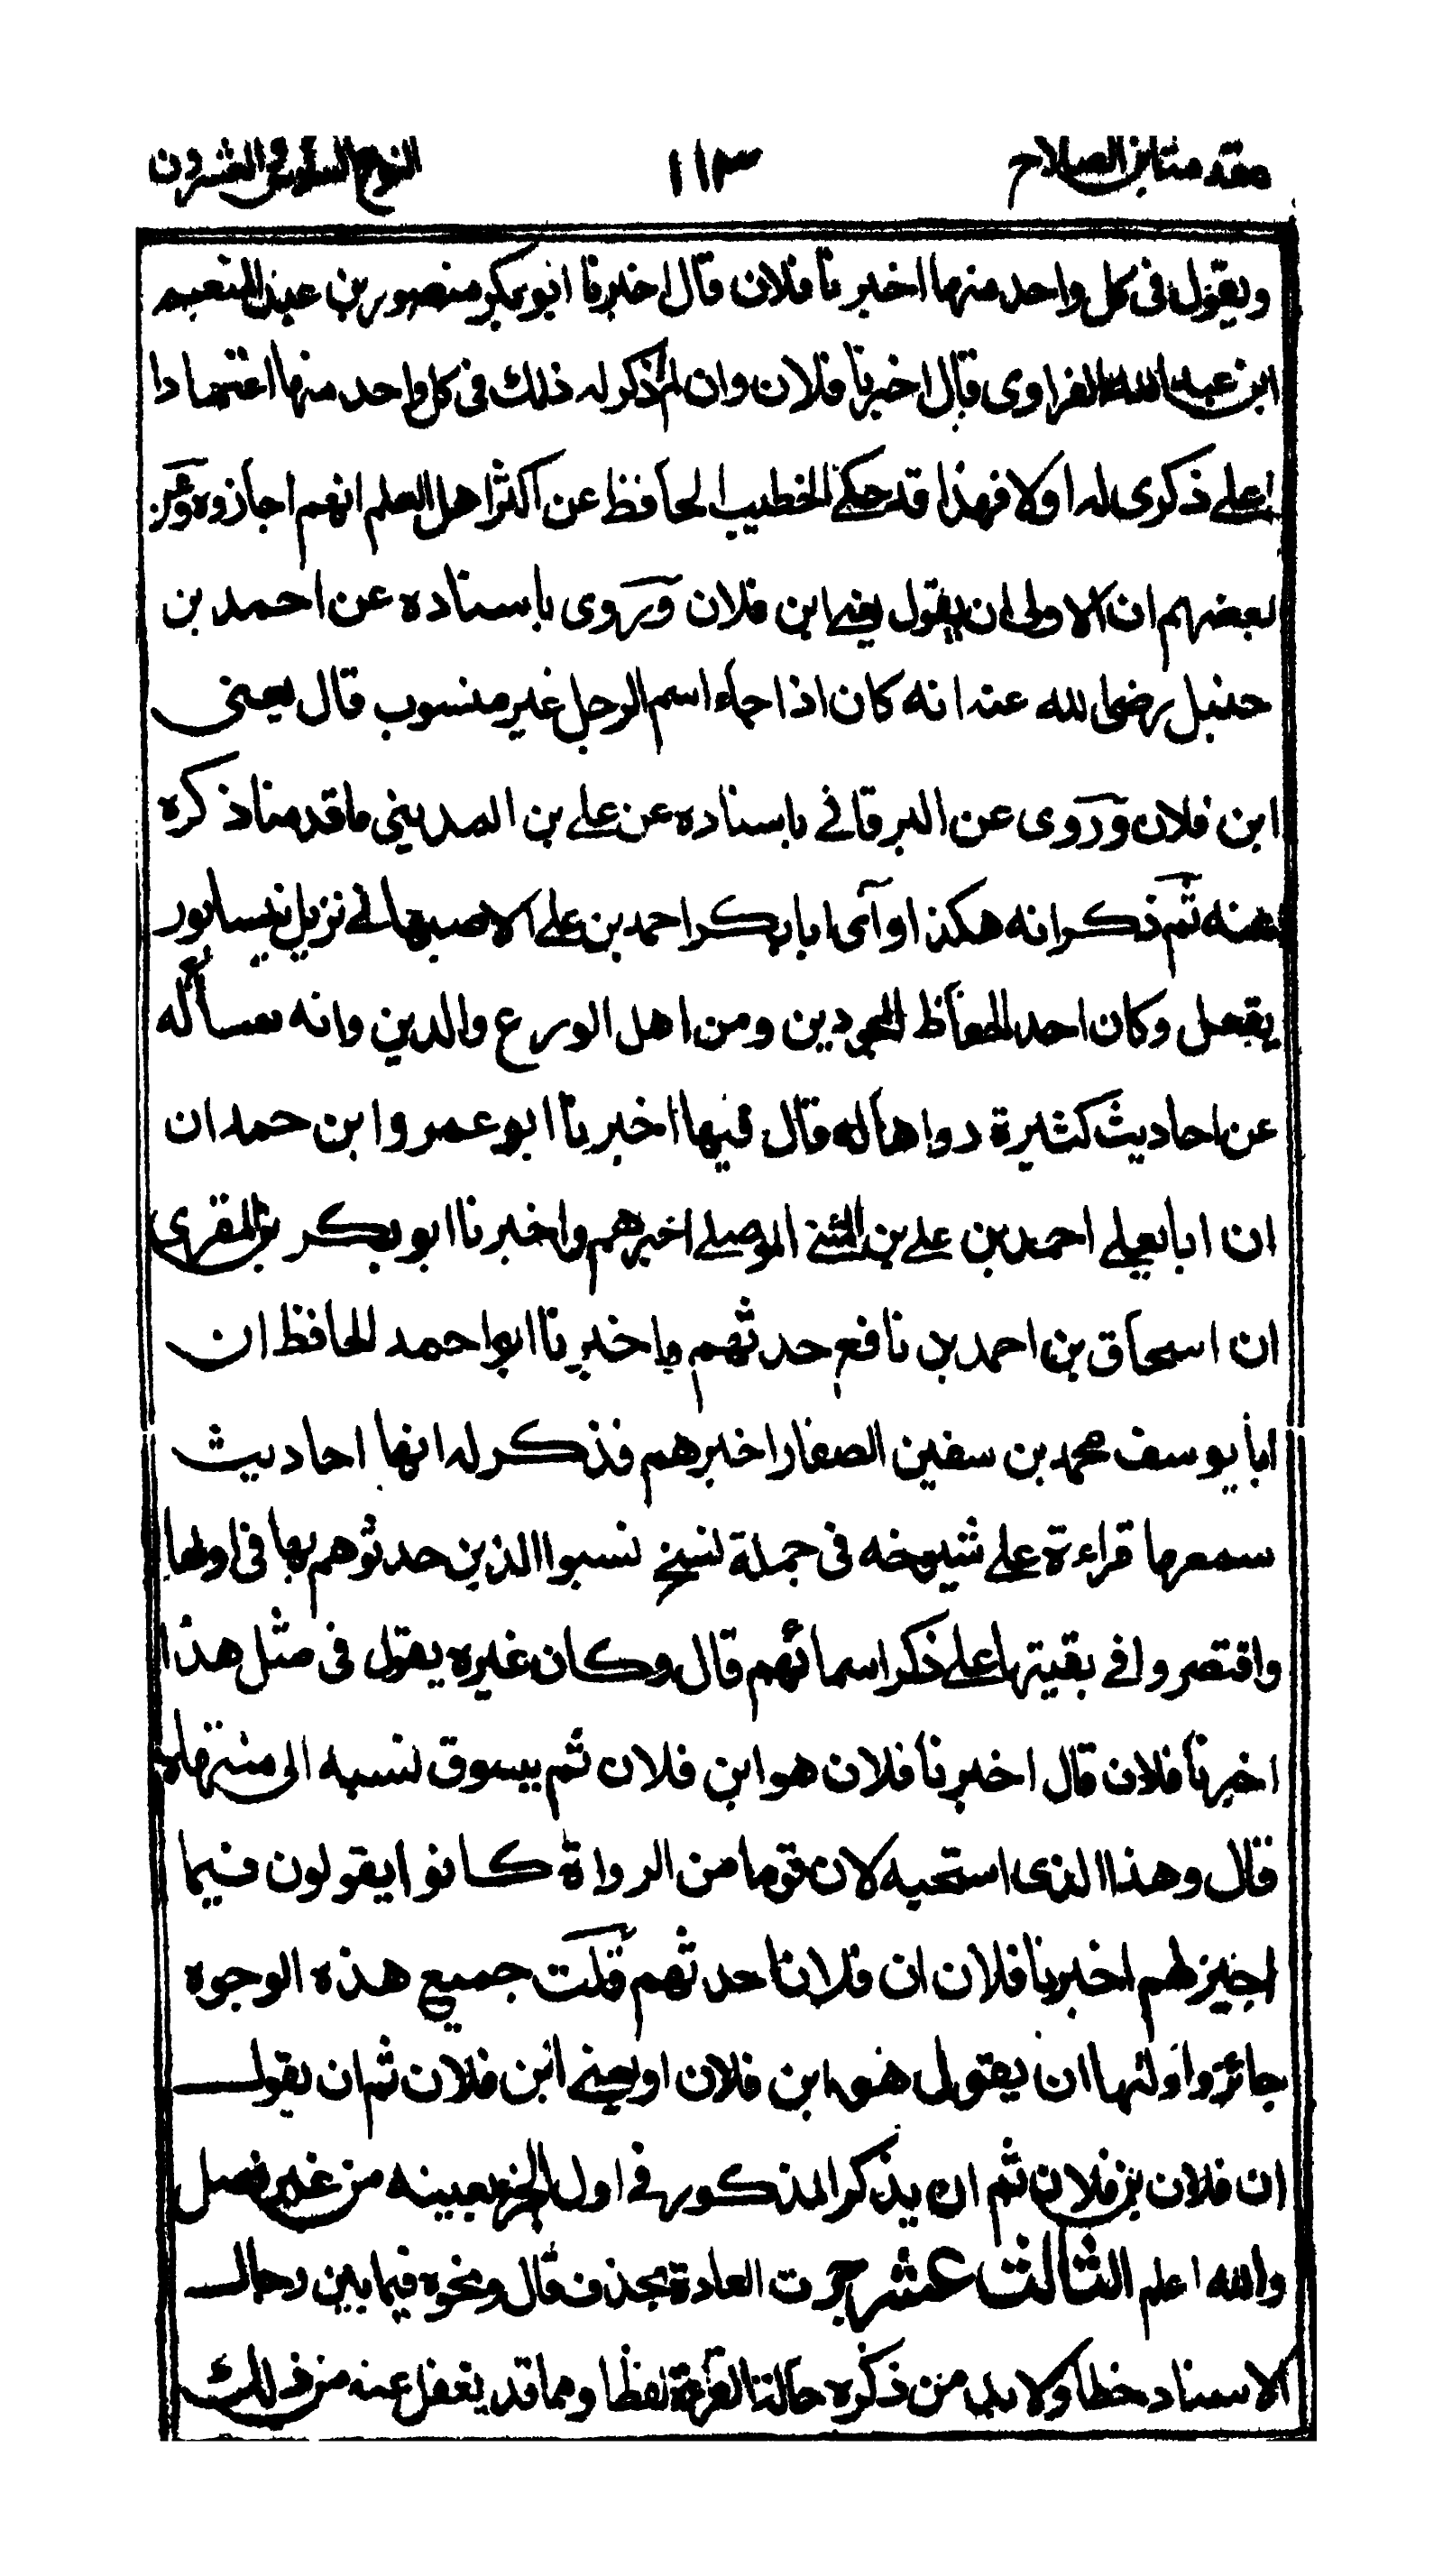 مقدمة ابن الصلاح ١١٣ النوع السادس والعشرون
ويقول فى كل واحد منها اخبرنا فلان قال اخبرنا ابوبكر منصور بن عبد المنعم
ابن عبد الله الفراوى قال اخبرنا فلان وان لم اذكر له ذلك فى كل واحد منها اعتمادا
على ذكرى له اولا فهذا قد حكى الخطيب الحافظ عن اكثر اهل العلم انهم اجازوه وعن
بعضهم ان الاولى ان يقول يعنى ابن فلان وروى باسناده عن احمد بن
حنبل رضى الله عنه انه كان اذا جاء اسم الرجل غير منسوب قال يعنى
ابن فلان وروى عن البرقانى باسناده عن على بن المدينى ما قدمنا ذكره
عنه ثم ذكر انه هكذا رآى ابا بكر احمد بن على الاصبهانى نزيل نيسابور
يفعل وكان احد الحفاظ المجودين ومن اهل الورع والدين وانه سأله
عن احاديث كثيرة رواها له قال فيها اخبرنا ابو عمرو ابن حمدان
ان ابا يعلى احمد بن على بن المثنى الموصلى اخبرهم واخبرنا ابو بكر بن المقرى
ان اسحاق بن احمد بن نافع حدثهم واخبرنا ابو احمد الحافظ ان
ابا يوسف محمد بن سفين الصفار اخبرهم فذكر له انها احاديث
سمعها قراءة على شيوخه فى جملة نسخ نسبوا الذين حدثوهم بها فى اولها
واقتصروا فى بقيتها على ذكر اسمائهم قال وكان غيره يقول فى مثل هذا
اخبرنا فلان قال اخبرنا فلان هو ابن فلان ثم يسوق نسبه الى منتهاه
قال وهذا الذى استحبه لان قوما من الرواة كانوا يقولون فيما
اجيز لهم اخبرنا فلان ان فلانا حدثهم قلت جميع هذه الوجوه
جائز واولها ان يقول هو ابن فلان او يعنى ابن فلان ثم ان يقول
ان فلان بن فلان ثم ان يذكر المذكور فى اول الجزء بعينه من غير فصل
والله اعلم الثالث عشر جرت العادة بحذف قال ونحوه فيما بين رجال
الاسناد خطا ولا بد من ذكره حالة القرأة لفظا ومما قد يغفل عنه من ذلك